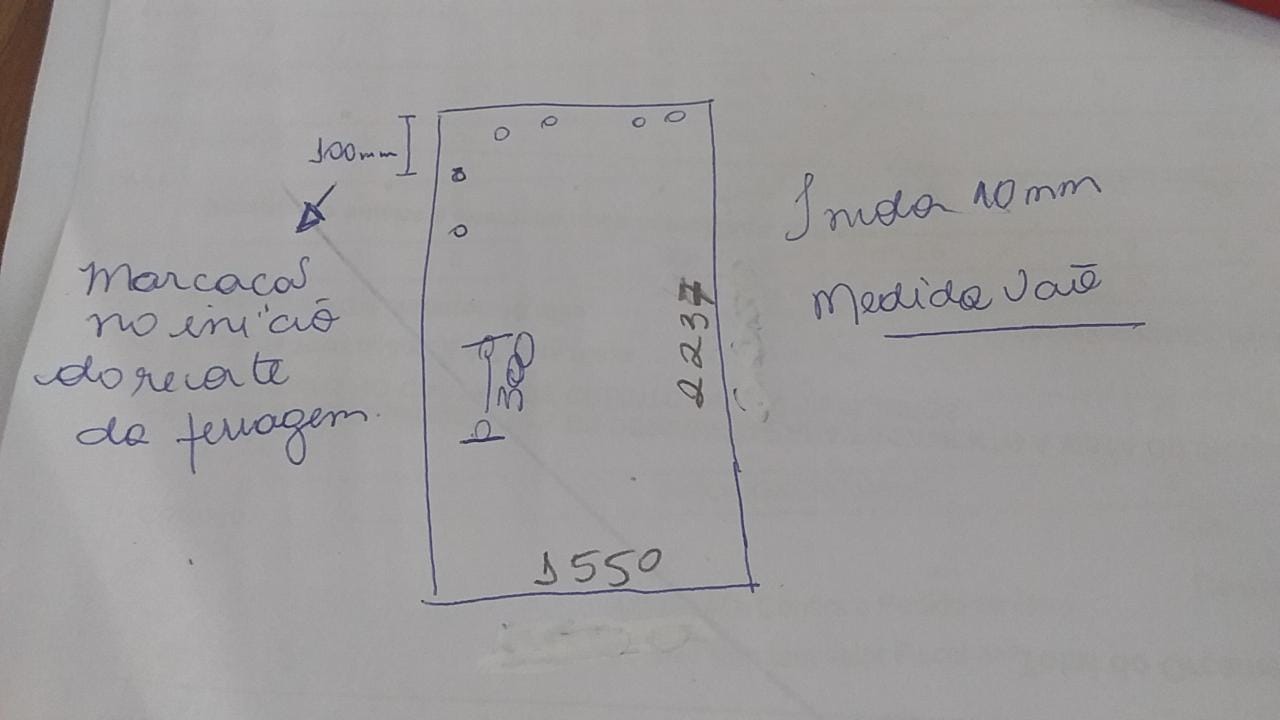 100mm
Marcacas
no inicio
do recorte
da ferragem.
300
2237
1550
10mm
Medida Vaõ